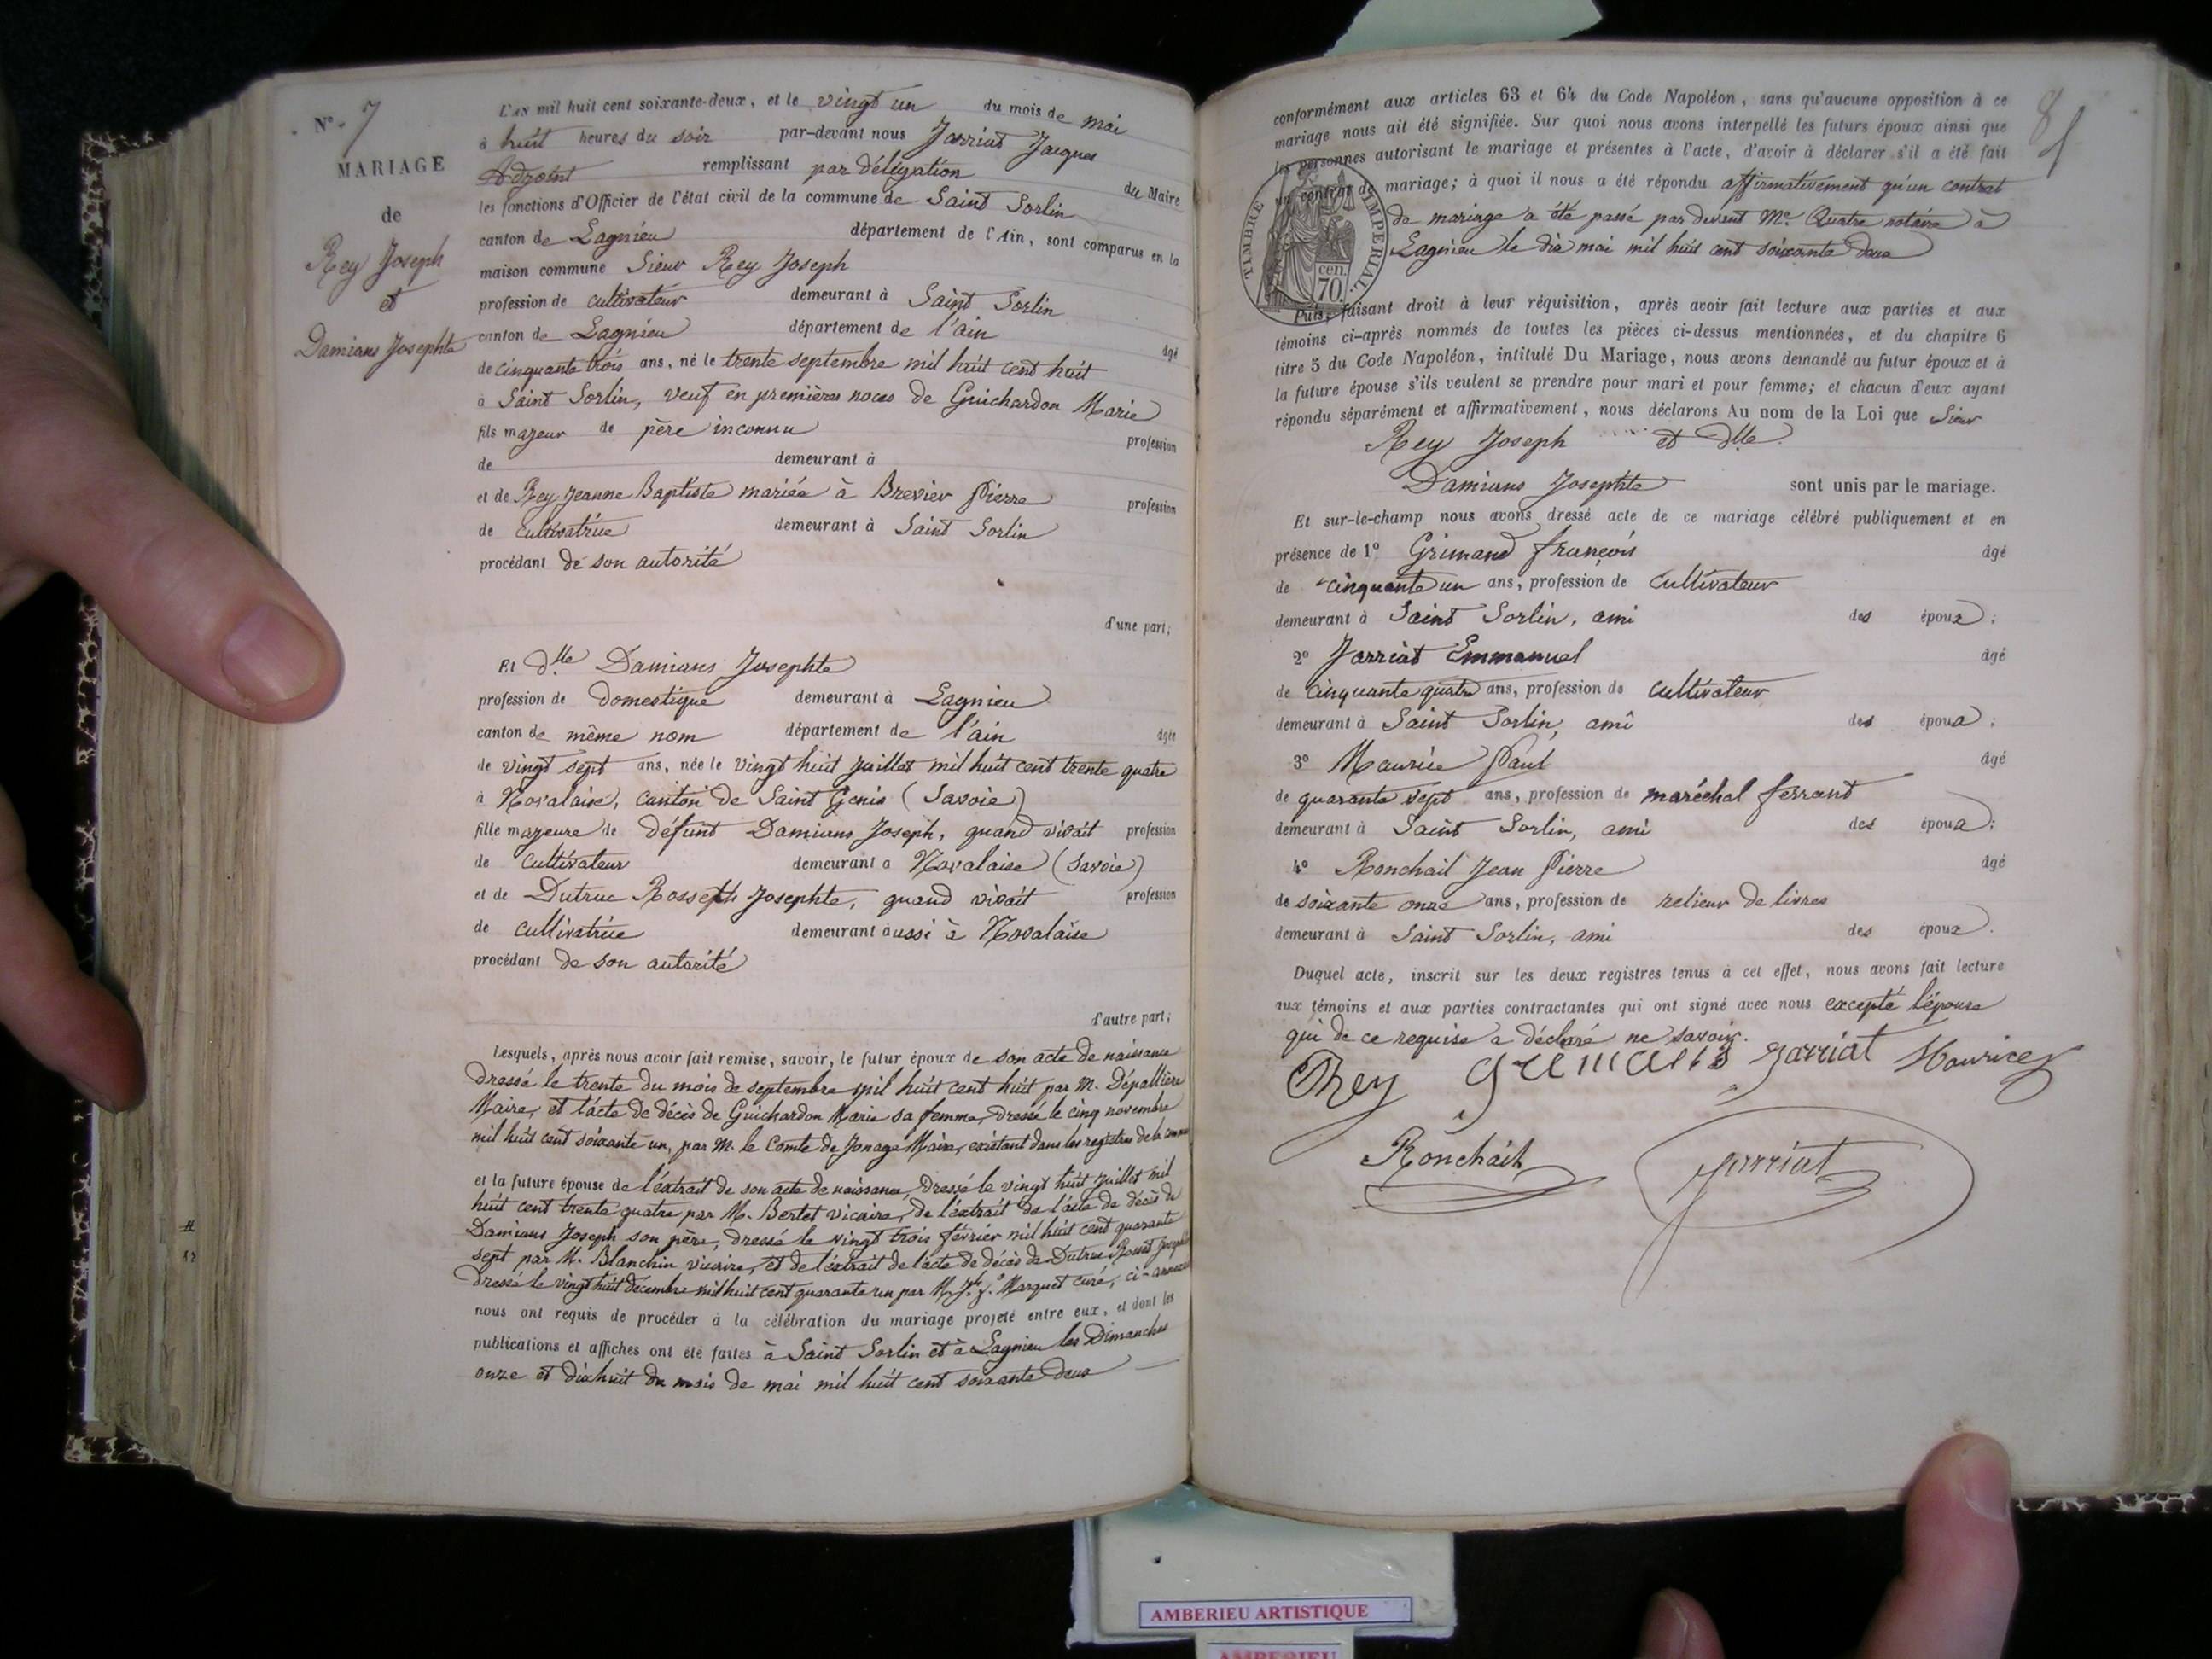 N°. 7
MARIAGE
de
Rey Joseph
et
Damians Josephte
L'AN mil huit cent soixante-deux, et le vingt un du mois de mai
à huit heures du soir par-devant nous Jarriat Jacques
Adjoint remplissant par délégation du Maire
les fonctions d'Officier de l'état civil de la commune de Saint Sorlin
canton de Lagnieu département de l'Ain, sont comparus en la
maison commune Sieur Rey Joseph
profession de cultivateur demeurant à Saint Sorlin
canton de Lagnieu département de l'ain âgé
de cinquante trois ans, né le trente septembre mil huit cent huit
à Saint Sorlin, veuf en premières noces de Guichardon Marie
fils majeur de père inconnu profession
de demeurant à
et de Rey Jeanne Baptiste mariée à Brevier Pierre profession
de cultivatrice demeurant à Saint Sorlin
procédant de son autorité
d'une part;
Et dlle Damians Josephte
profession de domestique demeurant à Lagnieu
canton de même nom département de l'ain âgée
de vingt sept ans, née le vingt huit juillet mil huit cent trente quatre
à Novalaise, canton de Saint Genis (Savoie)
fille majeure de défunt Damians Joseph, quand vivait profession
de cultivateur demeurant à Novalaise (Savoie)
et de Dutruc Rossett Josephte, quand vivait profession
de cultivatrice demeurant aussi à Novalaise
procédant de son autorité
d'autre part;
Lesquels, après nous avoir fait remise, savoir, le futur époux de son acte de naissance
dressé le trente du mois de septembre mil huit cent huit par M. Dépallière
Maire, et l'acte de décès de Guichardon Marie sa femme, dressé le cinq novembre
mil huit cent soixante un, par M. le Comte de Jonage Maire, existant dans les registres de la commune
et la future épouse de l'extrait de son acte de naissance, dressé le vingt huit juillet mil
huit cent trente quatre par M. Bertet vicaire, de l'extrait de l'acte de décès de
Damians Joseph son père, dressé le vingt trois février mil huit cent quarante
sept par M. Blanchin vicaire, et de l'extrait de l'acte de décès de Dutruc
dressé le vingt huit décembre mil huit cent quarante un par M. Marquet curé, ci-annexés
nous ont requis de procéder à la célébration du mariage projeté entre eux, et dont les
publications et affiches ont été faites à Saint Sorlin et à Lagnieu les Dimanches
onze et dix huit du mois de mai mil huit cent soixante deux
conformément aux articles 63 et 64 du Code Napoléon, sans qu'aucune opposition à ce
mariage nous ait été signifiée. Sur quoi nous avons interpellé les futurs époux ainsi que
les personnes autorisant le mariage et présentes à l'acte, d'avoir à déclarer s'il a été fait
un contrat de mariage; à quoi il nous a été répondu affirmativement qu'un contrat
de mariage a été passé par devant Me. Quatre notaire à
Lagnieu le dix mai mil huit cent soixante deux
TIMBRE IMPÉRIAL
cen.
70.
Puis, faisant droit à leur réquisition, après avoir fait lecture aux parties et aux
témoins ci-après nommés de toutes les pièces ci-dessus mentionnées, et du chapitre 6
titre 5 du Code Napoléon, intitulé Du Mariage, nous avons demandé au futur époux et à
la future épouse s'ils veulent se prendre pour mari et pour femme; et chacun d'eux ayant
répondu séparément et affirmativement, nous déclarons Au nom de la Loi que Sieur
Rey Joseph et dlle.
Damians Josephte sont unis par le mariage.
Et sur-le-champ nous avons dressé acte de ce mariage célébré publiquement et en
présence de 1° Grimand françois âgé
de cinquante un ans, profession de cultivateur
demeurant à Saint Sorlin, ami des époux;
2° Jarriat Emmanuel âgé
de cinquante quatre ans, profession de cultivateur
demeurant à Saint Sorlin, ami des époux;
3° Maurice Paul âgé
de quarante sept ans, profession de maréchal ferrant
demeurant à Saint Sorlin, ami des époux;
4° Ronchail Jean Pierre âgé
de soixante onze ans, profession de relieur de livres
demeurant à Saint Sorlin, ami des époux.
Duquel acte, inscrit sur les deux registres tenus à cet effet, nous avons fait lecture
aux témoins et aux parties contractantes qui ont signé avec nous excepté l'épouse
qui de ce requise a déclaré ne savoir.
Rey Jarriat Maurice
Ronchail Jarriat
AMBERIEU ARTISTIQUE
AMBERIEU